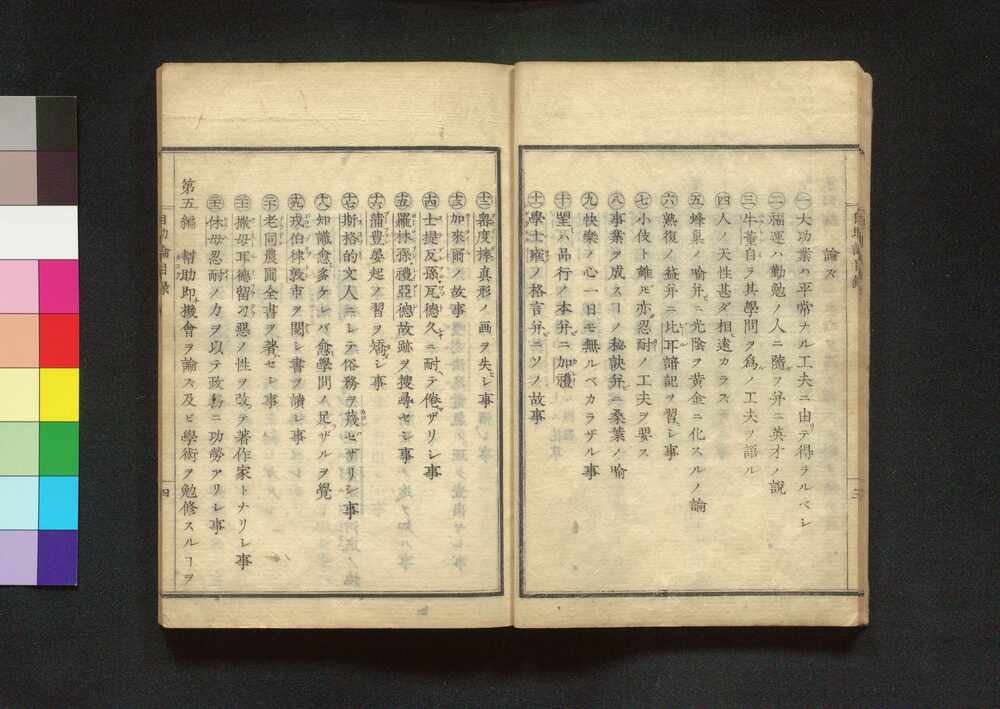 論ズ
㊀大功業ハ平常ナル工夫ニ由テ得ラルベシ
㊁福運ハ勤勉ノ人ニ隨フ弁ニ英才ノ說
㊂牛董自ラ其學問ヲ爲ノ工夫ヲ語ル
㊃人ノ天性甚ダ相遠カラズ
㊄蜂巢ノ喻弁ニ光陰ヲ黄金ニ化スルノ論
㊅熟復ノ益弁ニ比耳諳記ヲ習ヒシ事
㊆小伎ト雖ドモ亦忍耐ノ工夫ヲ要ス
㊇事業ヲ成スヿノ秘訣弁ニ桑葉ノ喻
㊈快樂ノ心一日モ無ルベカラザル事
㊉望ハ品行ノ本弁ニ加禮
㊉㊀學士ノ格言弁ニソノ故事
㊉㊁度捧真形ノ画ヲ失ヒシ事
㊉㊂加來爾ノ故事
㊉㊃士提反孫瓦德久ニ耐テ倦ザリシ事
㊉㊄羅林孫禮亞德故跡ヲ搜尋セシ事
㊉㊅蒲豊晏起ノ習ヲ矯シ事
㊉㊆斯格的文人ニシテ俗務ヲ蔑セザリシ事
㊉㊇知識愈多ケレバ愈學問ノ足ザルヲ覺
㊉㊈戎伯律敦市ヲ閲シ書ヲ讀シ事
老同農圃全書ヲ著セシ事
撒母耳德留刁惡ノ性ヲ改テ著作家トナリシ事
休母忍耐ノ力ヲ以テ政務ニ功勞アリシ事
第五編 幇助卽機會ヲ論ズ及ビ學術ヲ勉修スルヿヲ
自助論目録
四